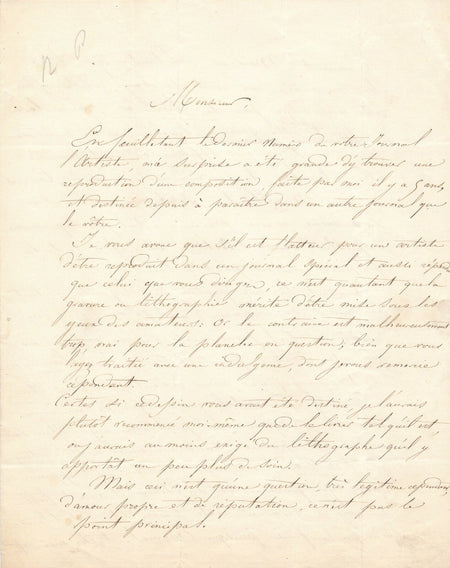 Monsieur,
En feuilletant le dernier numéro de votre Journal
l'Artiste, ma surprise a été grande d'y trouver une
reproduction d'une composition, faite par moi il y a 5 ans,
et destinée depuis à paraître dans un autre journal que
le vôtre.
Je vous avoue que s'il est flatteur pour un artiste
d'être reproduit dans un journal spécial et aussi répandu
que celui que vous dirigez, ce n'est qu'autant que la
gravure ou lithographie mérite d'être mise sous les
yeux des amateurs: or le contraire est malheureusement
trop vrai pour la planche en question; bien que vous
l'ayez traitée avec une indulgence, dont je vous remercie
cependant.
Certes si ce dessin vous avait été destiné, je l'aurais
plutôt recommencé moi-même que de le livrer tel qu'il est,
ou j'aurais au moins exigé du lithographe qu'il y
apportât un peu plus de soin.
Mais ceci n'est qu'une question, très légitime cependant,
d'amour propre et de réputation, ce n'est pas le
point principal.